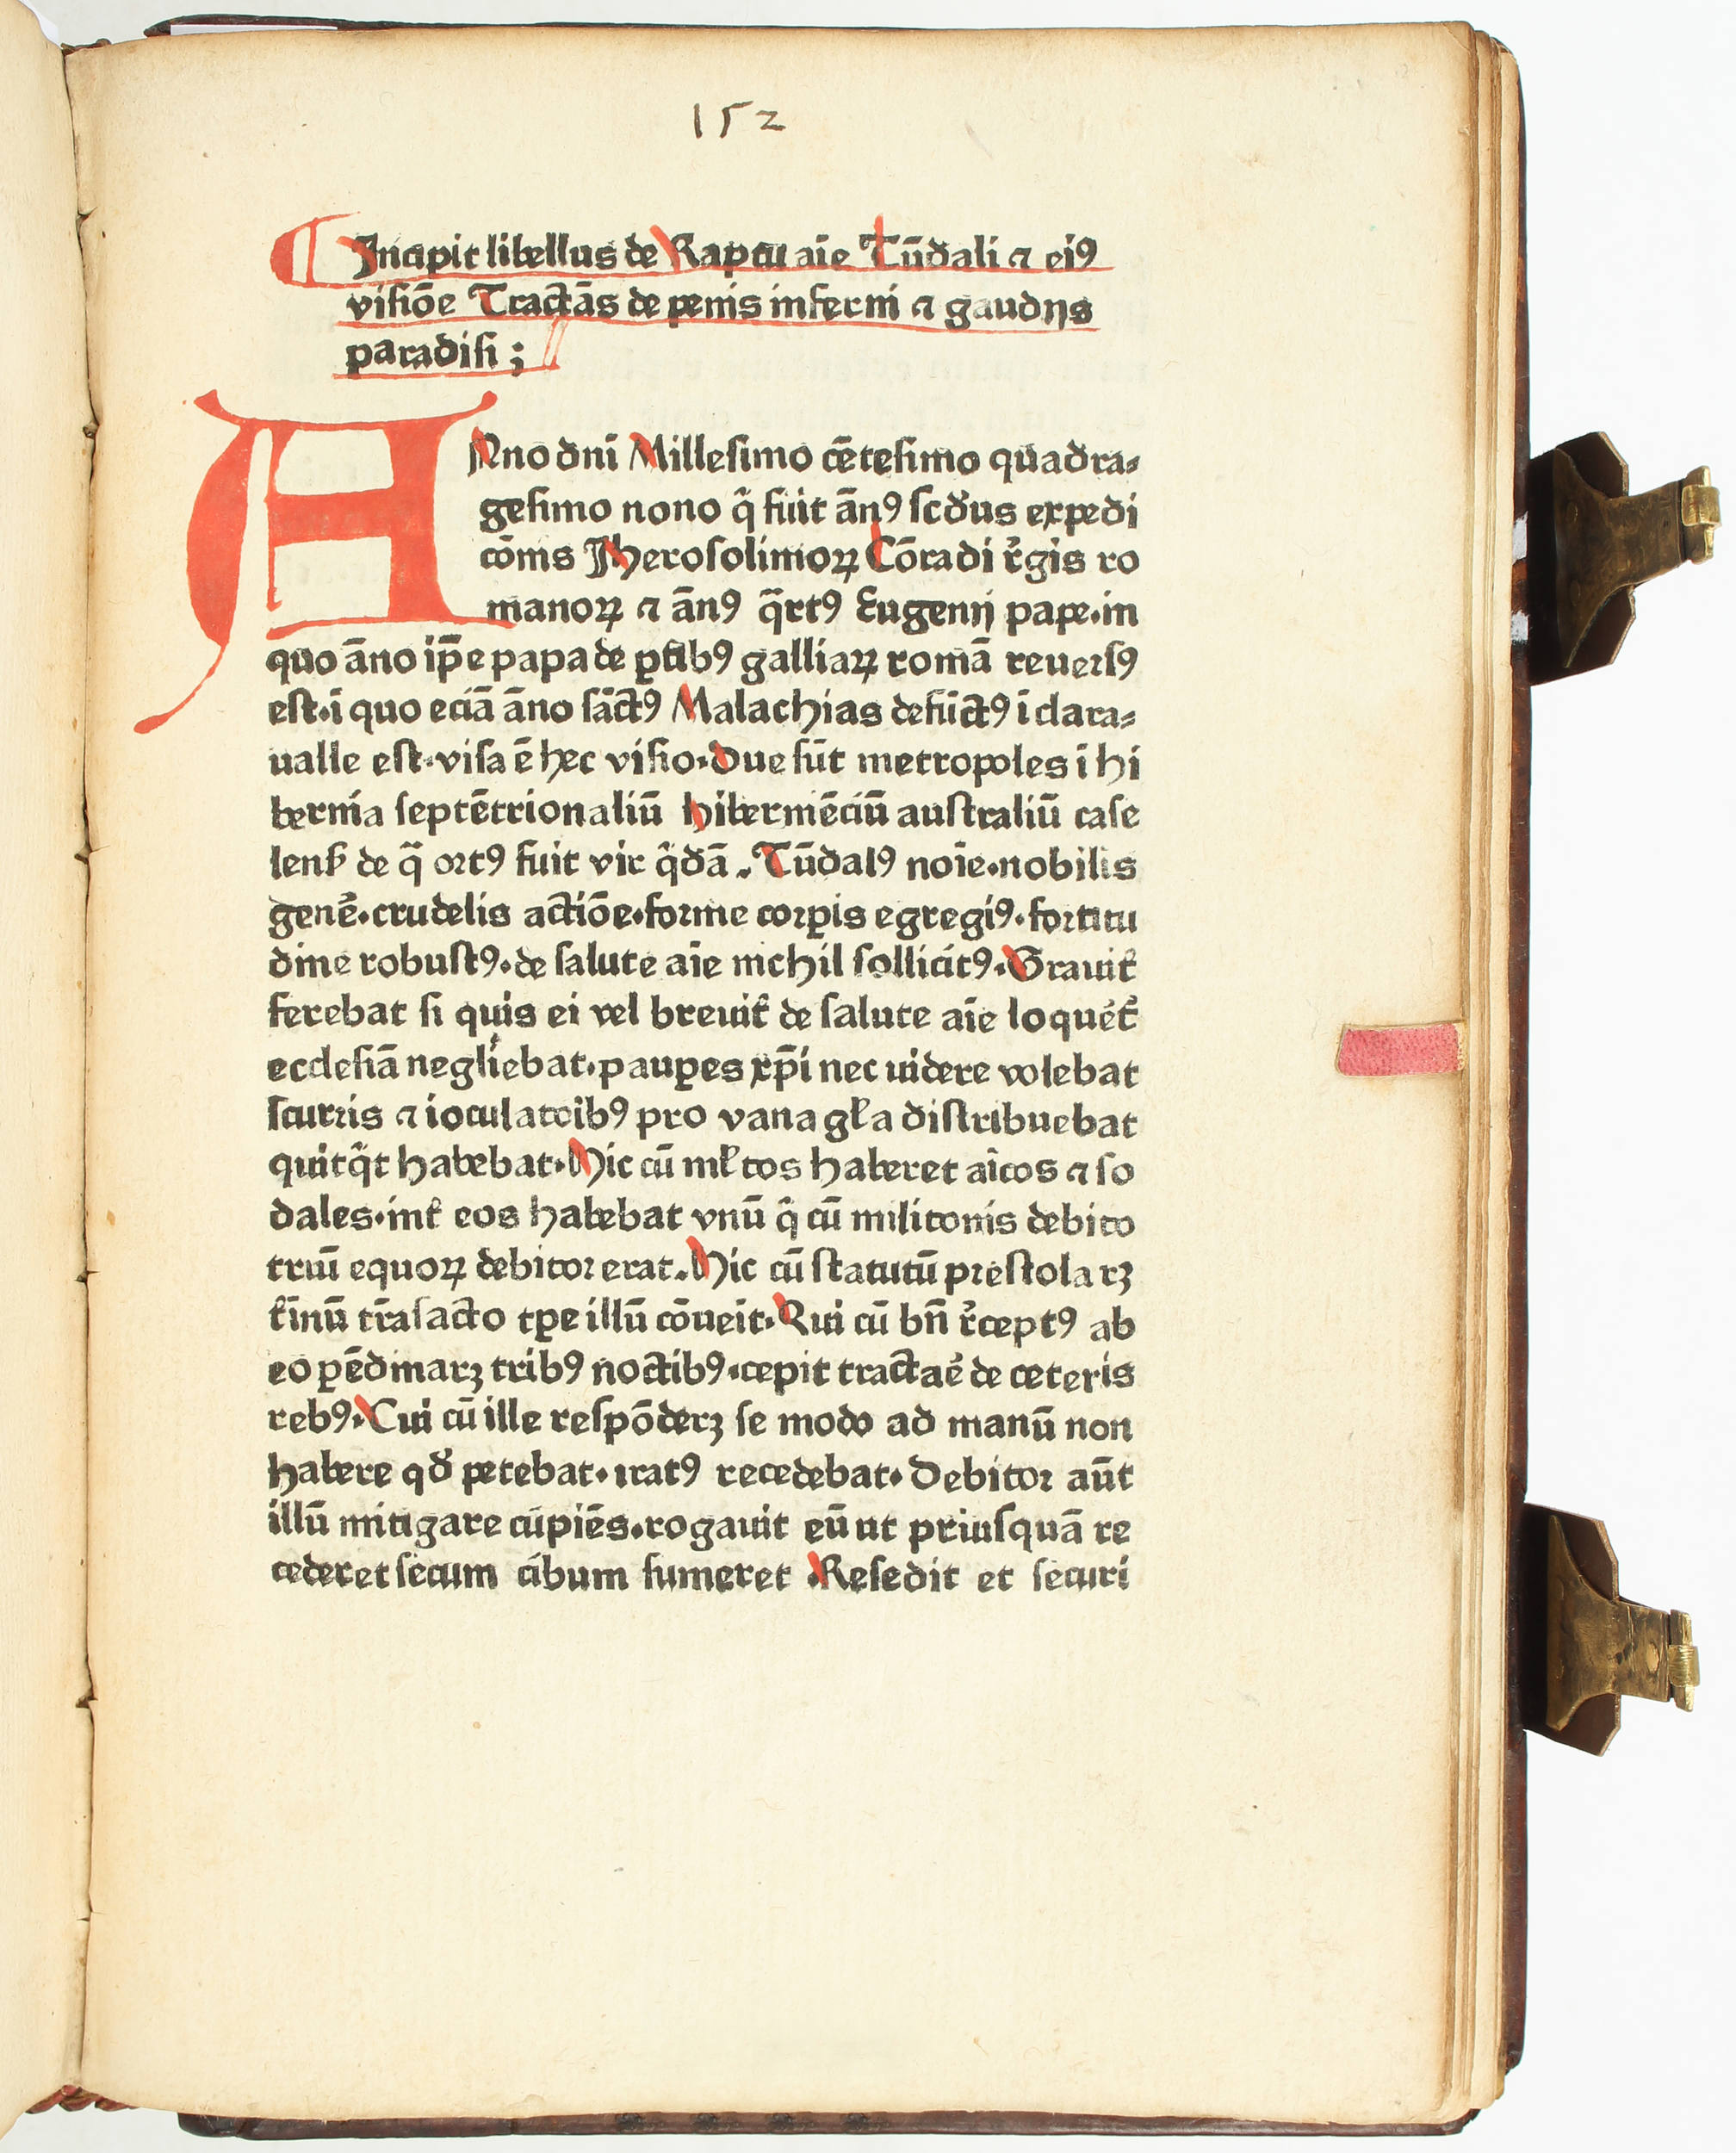 152
Incipit libellus de Raptu aīe Tūdali ⁊ eiꝰ
visiōe Tractās de penis inferni ⁊ gaudijs
paradisi ;
ANno dnī Millesimo cētesimo quadra⸗
gesimo nono q̄ fuit ānꝰ scd̓us expedi
cōnis Jherosolimoꝝ Cōradi r̓gis ro
manoꝝ ⁊ ānꝰ q̄rtꝰ Eugenij pape·in
quo āno ip̄e papa de ꝑtibꝰ galliaꝝ romā reuersꝰ
est·ī quo eciā āno sāctꝰ Malachias defūctꝰ ī clara⸗
ualle est·visa ē hec visio·Due sūt metropoles ī hi
bernia septētrionaliū hibernēciū australiū case
lenẜ de q̄ ortꝰ fuit vir q̄dā. Tūdalꝰ noīe·nobilis
gene᷒·crudelis actiōe·forme corꝑis egregiꝰ·fortitu
dine robustꝰ·de salute aīe nichil sollicitꝰ·Grauit᷑
ferebat si quis ei vel breuit᷑ de salute aīe loque᷒t᷑
ecclesiā negliebat·pauꝑes xp̄i nec uidere volebat
scurris ⁊ ioculatoibꝰ pro vana gl̓a distribuebat
quitq̄t habebat·Hic cū ml̓tos haberet aīcos ⁊ so
dales·int᷑ eos habebat vnū q̄ cū militonis debito
triū equoꝝ debitor erat. Hic cū statutū prestolarꝫ
t᷑īnū trāsacto tꝑe illū cōueīt·Qui cū bn̄ r̓ceptꝰ ab
eo ꝑēdinarꝫ tribꝰ noctibꝰ·cepit tractae᷒ de ceteris
rebꝰ·Cui cū ille respōderꝫ se modo ad manū non
habere qd̓ petebat·iratꝰ recedebat·Debitor aūt
illū mitigare cupiēs·rogauit eū ut priusquā re
cederet secum cibum sumeret ·Resedit et securi